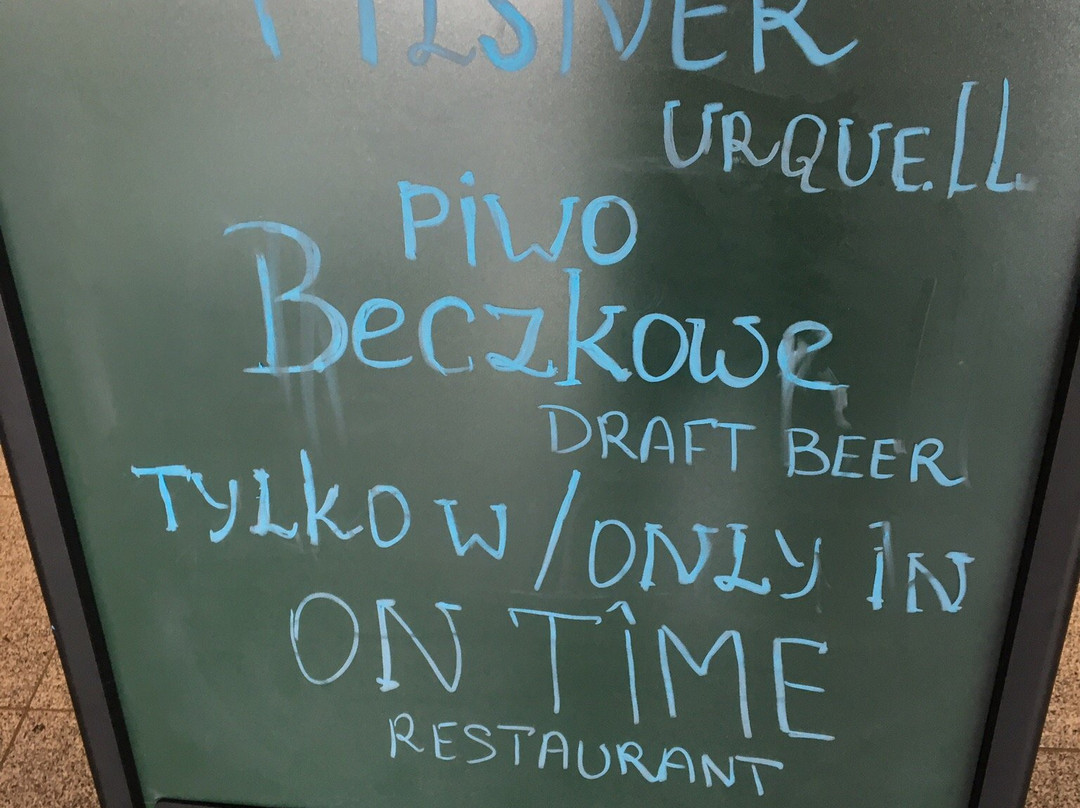 PILSNER
URQUELL
PIWO
BECZKOWE
DRAFT BEER
TYLKO W / ONLY IN
ON TIME
RESTAURANT